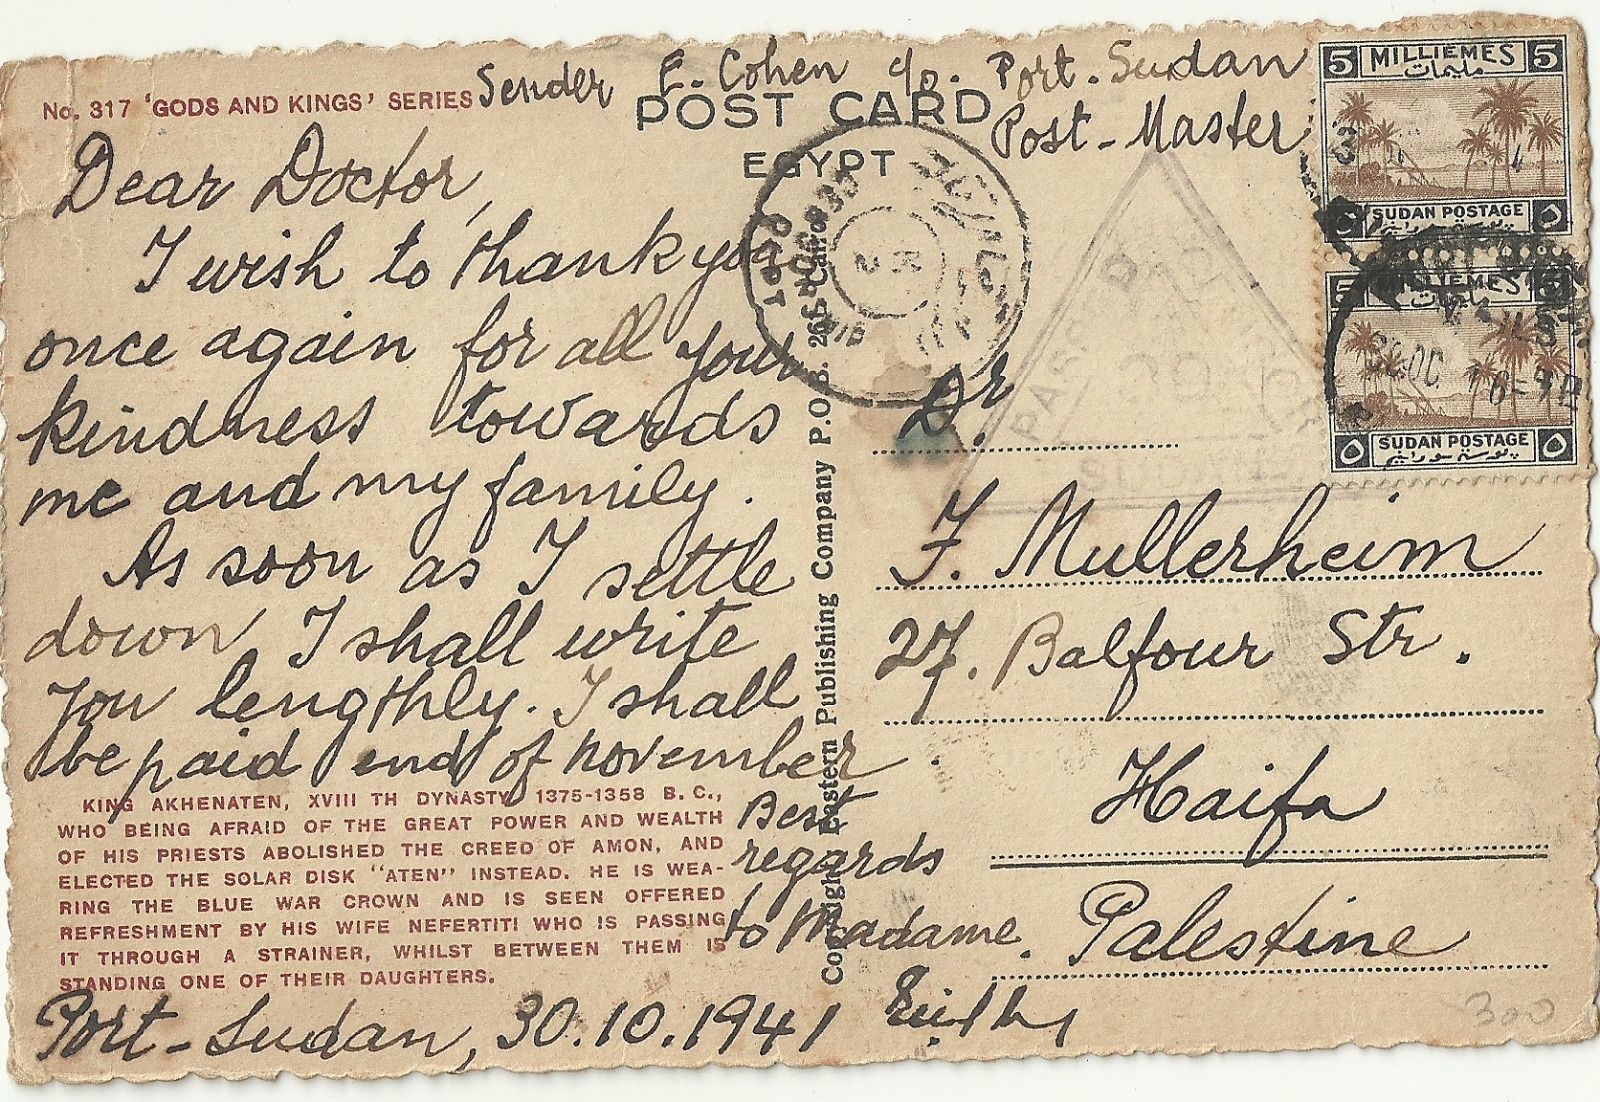 No. 317 'GODS AND KINGS' SERIES
Sender E. Cohen c/o. Port. Sudan
Post-Master
POST CARD
EGYPT
Dear Doctor,
I wish to thank you
once again for all your
kindness towards
me and my family.
As soon as I settle
down I shall write
you lengthly. I shall
be paid end of november.
Best
regards
to Madame.
KING AKHENATEN, XVIII TH DYNASTY, 1375-1358 B. C.,
WHO BEING AFRAID OF THE GREAT POWER AND WEALTH
OF HIS PRIESTS ABOLISHED THE CREED OF AMON, AND
ELECTED THE SOLAR DISK "ATEN" INSTEAD. HE IS WEA-
RING THE BLUE WAR CROWN AND IS SEEN OFFERED
REFRESHMENT BY HIS WIFE NEFERTITI WHO IS PASSING
IT THROUGH A STRAINER, WHILST BETWEEN THEM IS
STANDING ONE OF THEIR DAUGHTERS.
Port-Sudan, 30.10.1941
Copyright Eastern Publishing Company P.O.B. 265 Cairo
Dr.
F. Mullerheim
27. Balfour Str.
Haifa
Palestine
5 MILLIEMES 5
مليمات
SUDAN POSTAGE
بوستة سودانية
MILLIEMES 5
مليمات
٥ SUDAN POSTAGE ٥
بوستة سودانية
300